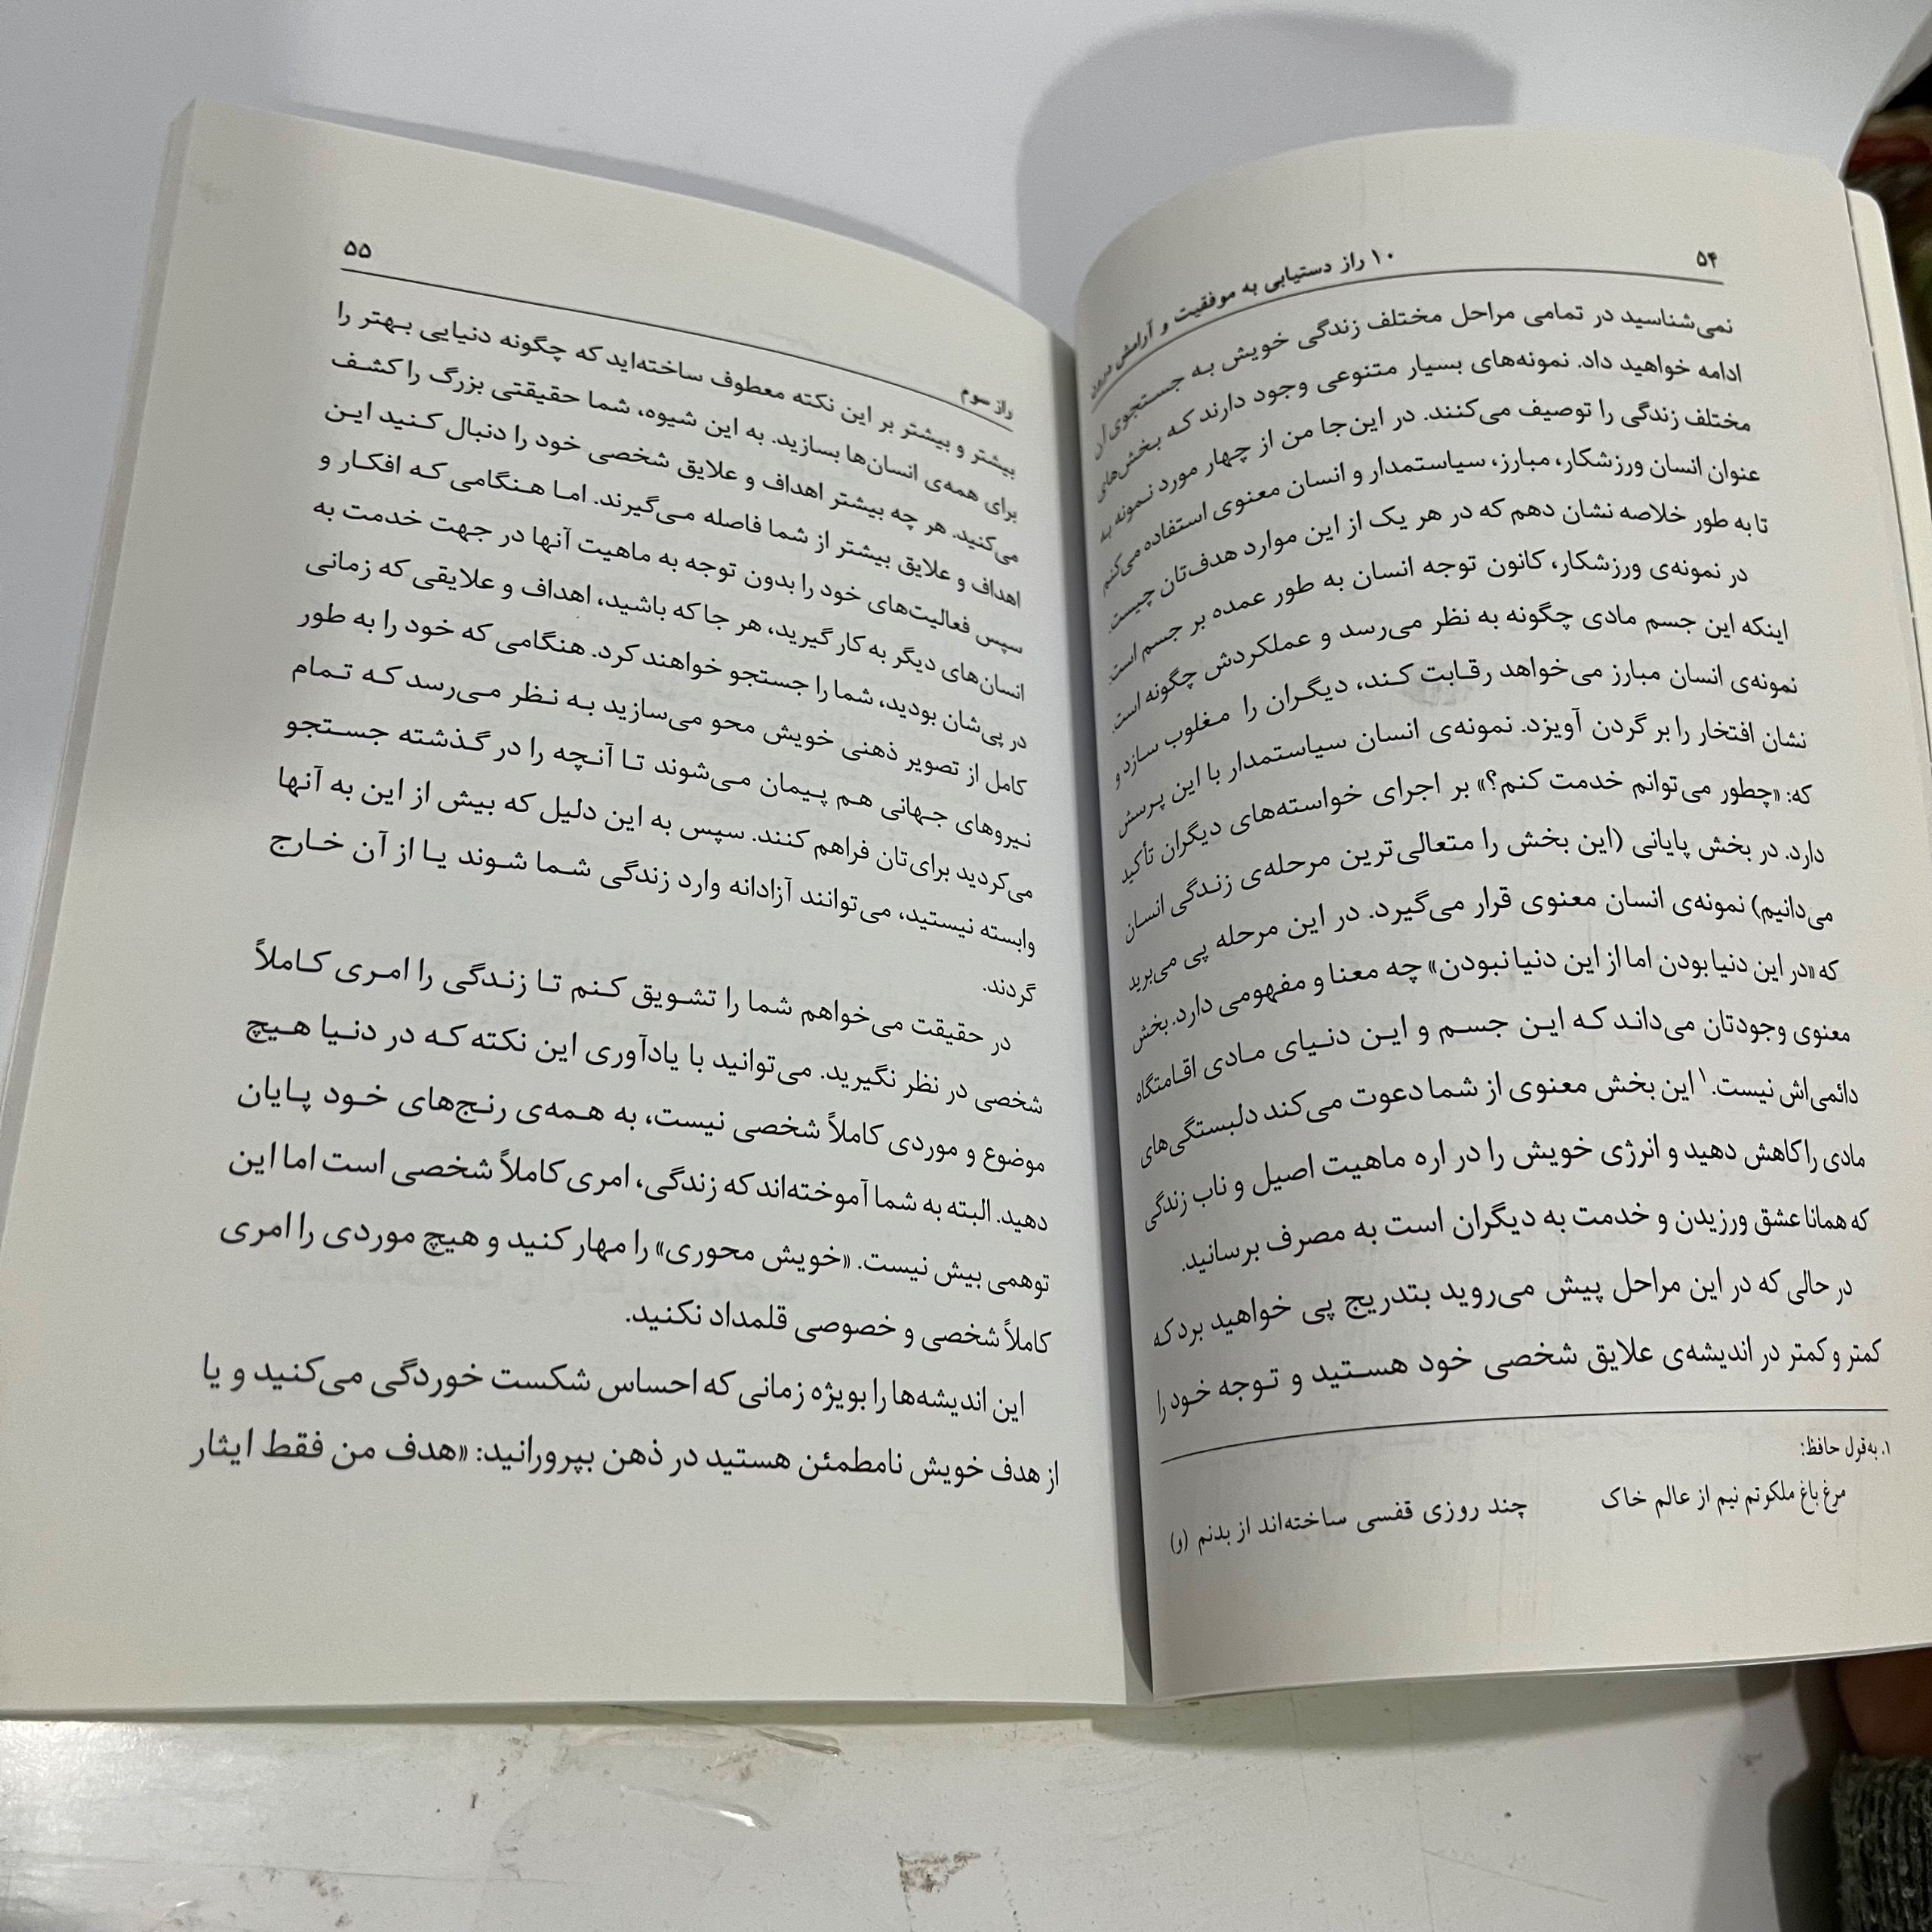 ۵۴
۱۰ راز دستیابی به موفقیت و آرامش درون
نمی‌شناسید در تمامی مراحل مختلف زندگی خویش به جستجوی آن
ادامه خواهید داد. نمونه‌های بسیار متنوعی وجود دارند که بخش‌های
مختلف زندگی را توصیف می‌کنند. در این‌جا من از چهار مورد نمونه به
عنوان انسان ورزشکار، مبارز، سیاستمدار و انسان معنوی استفاده می‌کنم
تا به طور خلاصه نشان دهم که در هر یک از این موارد هدف‌تان چیست.
در نمونه‌ی ورزشکار، کانون توجه انسان به طور عمده بر جسم است.
اینکه این جسم مادی چگونه به نظر می‌رسد و عملکردش چگونه است.
نمونه‌ی انسان مبارز می‌خواهد رقابت کند، دیگران را مغلوب سازد و
نشان افتخار را بر گردن آویزد. نمونه‌ی انسان سیاستمدار با این پرسش
که: «چطور می‌توانم خدمت کنم؟» بر اجرای خواسته‌های دیگران تأکید
دارد. در بخش پایانی (این بخش را متعالی‌ترین مرحله‌ی زندگی انسان
می‌دانیم) نمونه‌ی انسان معنوی قرار می‌گیرد. در این مرحله پی می‌برید
که «در این دنیا بودن اما از این دنیا نبودن» چه معنا و مفهومی دارد. بخش
معنوی وجودتان می‌داند که این جسم و این دنیای مادی اقامتگاه
دائمی‌اش نیست.۱ این بخش معنوی از شما دعوت می‌کند دلبستگی‌های
مادی را کاهش دهید و انرژی خویش را در اره ماهیت اصیل و ناب زندگی
که همانا عشق ورزیدن و خدمت به دیگران است به مصرف برسانید.
در حالی که در این مراحل پیش می‌روید بتدریج پی خواهید برد که
کمتر و کمتر در اندیشه‌ی علایق شخصی خود هستید و توجه خود را
۱. به‌قول حافظ:
مرغ باغ ملکوتم نیم از عالم خاک چند روزی قفسی ساخته‌اند از بدنم (و)
راز سوم
۵۵
بیشتر و بیشتر بر این نکته معطوف ساخته‌اید که چگونه دنیایی بهتر را
برای همه‌ی انسان‌ها بسازید. به این شیوه، شما حقیقتی بزرگ را کشف
می‌کنید. هر چه بیشتر اهداف و علایق شخصی خود را دنبال کنید این
اهداف و علایق بیشتر از شما فاصله می‌گیرند. اما هنگامی که افکار و
سپس فعالیت‌های خود را بدون توجه به ماهیت آنها در جهت خدمت به
انسان‌های دیگر به کار گیرید، هر جا که باشید، اهداف و علایقی که زمانی
در پی‌شان بودید، شما را جستجو خواهند کرد. هنگامی که خود را به طور
کامل از تصویر ذهنی خویش محو می‌سازید به نظر می‌رسد که تمام
نیروهای جهانی هم پیمان می‌شوند تا آنچه را در گذشته جستجو
می‌کردید برای‌تان فراهم کنند. سپس به این دلیل که بیش از این به آنها
وابسته نیستید، می‌توانند آزادانه وارد زندگی شما شوند یا از آن خارج
گردند.
در حقیقت می‌خواهم شما را تشویق کنم تا زندگی را امری کاملاً
شخصی در نظر نگیرید. می‌توانید با یادآوری این نکته که در دنیا هیچ
موضوع و موردی کاملاً شخصی نیست، به همه‌ی رنج‌های خود پایان
دهید. البته به شما آموخته‌اند که زندگی، امری کاملاً شخصی است اما این
توهمی بیش نیست. «خویش محوری» را مهار کنید و هیچ موردی را امری
کاملاً شخصی و خصوصی قلمداد نکنید.
این اندیشه‌ها را بویژه زمانی که احساس شکست خوردگی می‌کنید و یا
از هدف خویش نامطمئن هستید در ذهن بپرورانید: «هدف من فقط ایثار